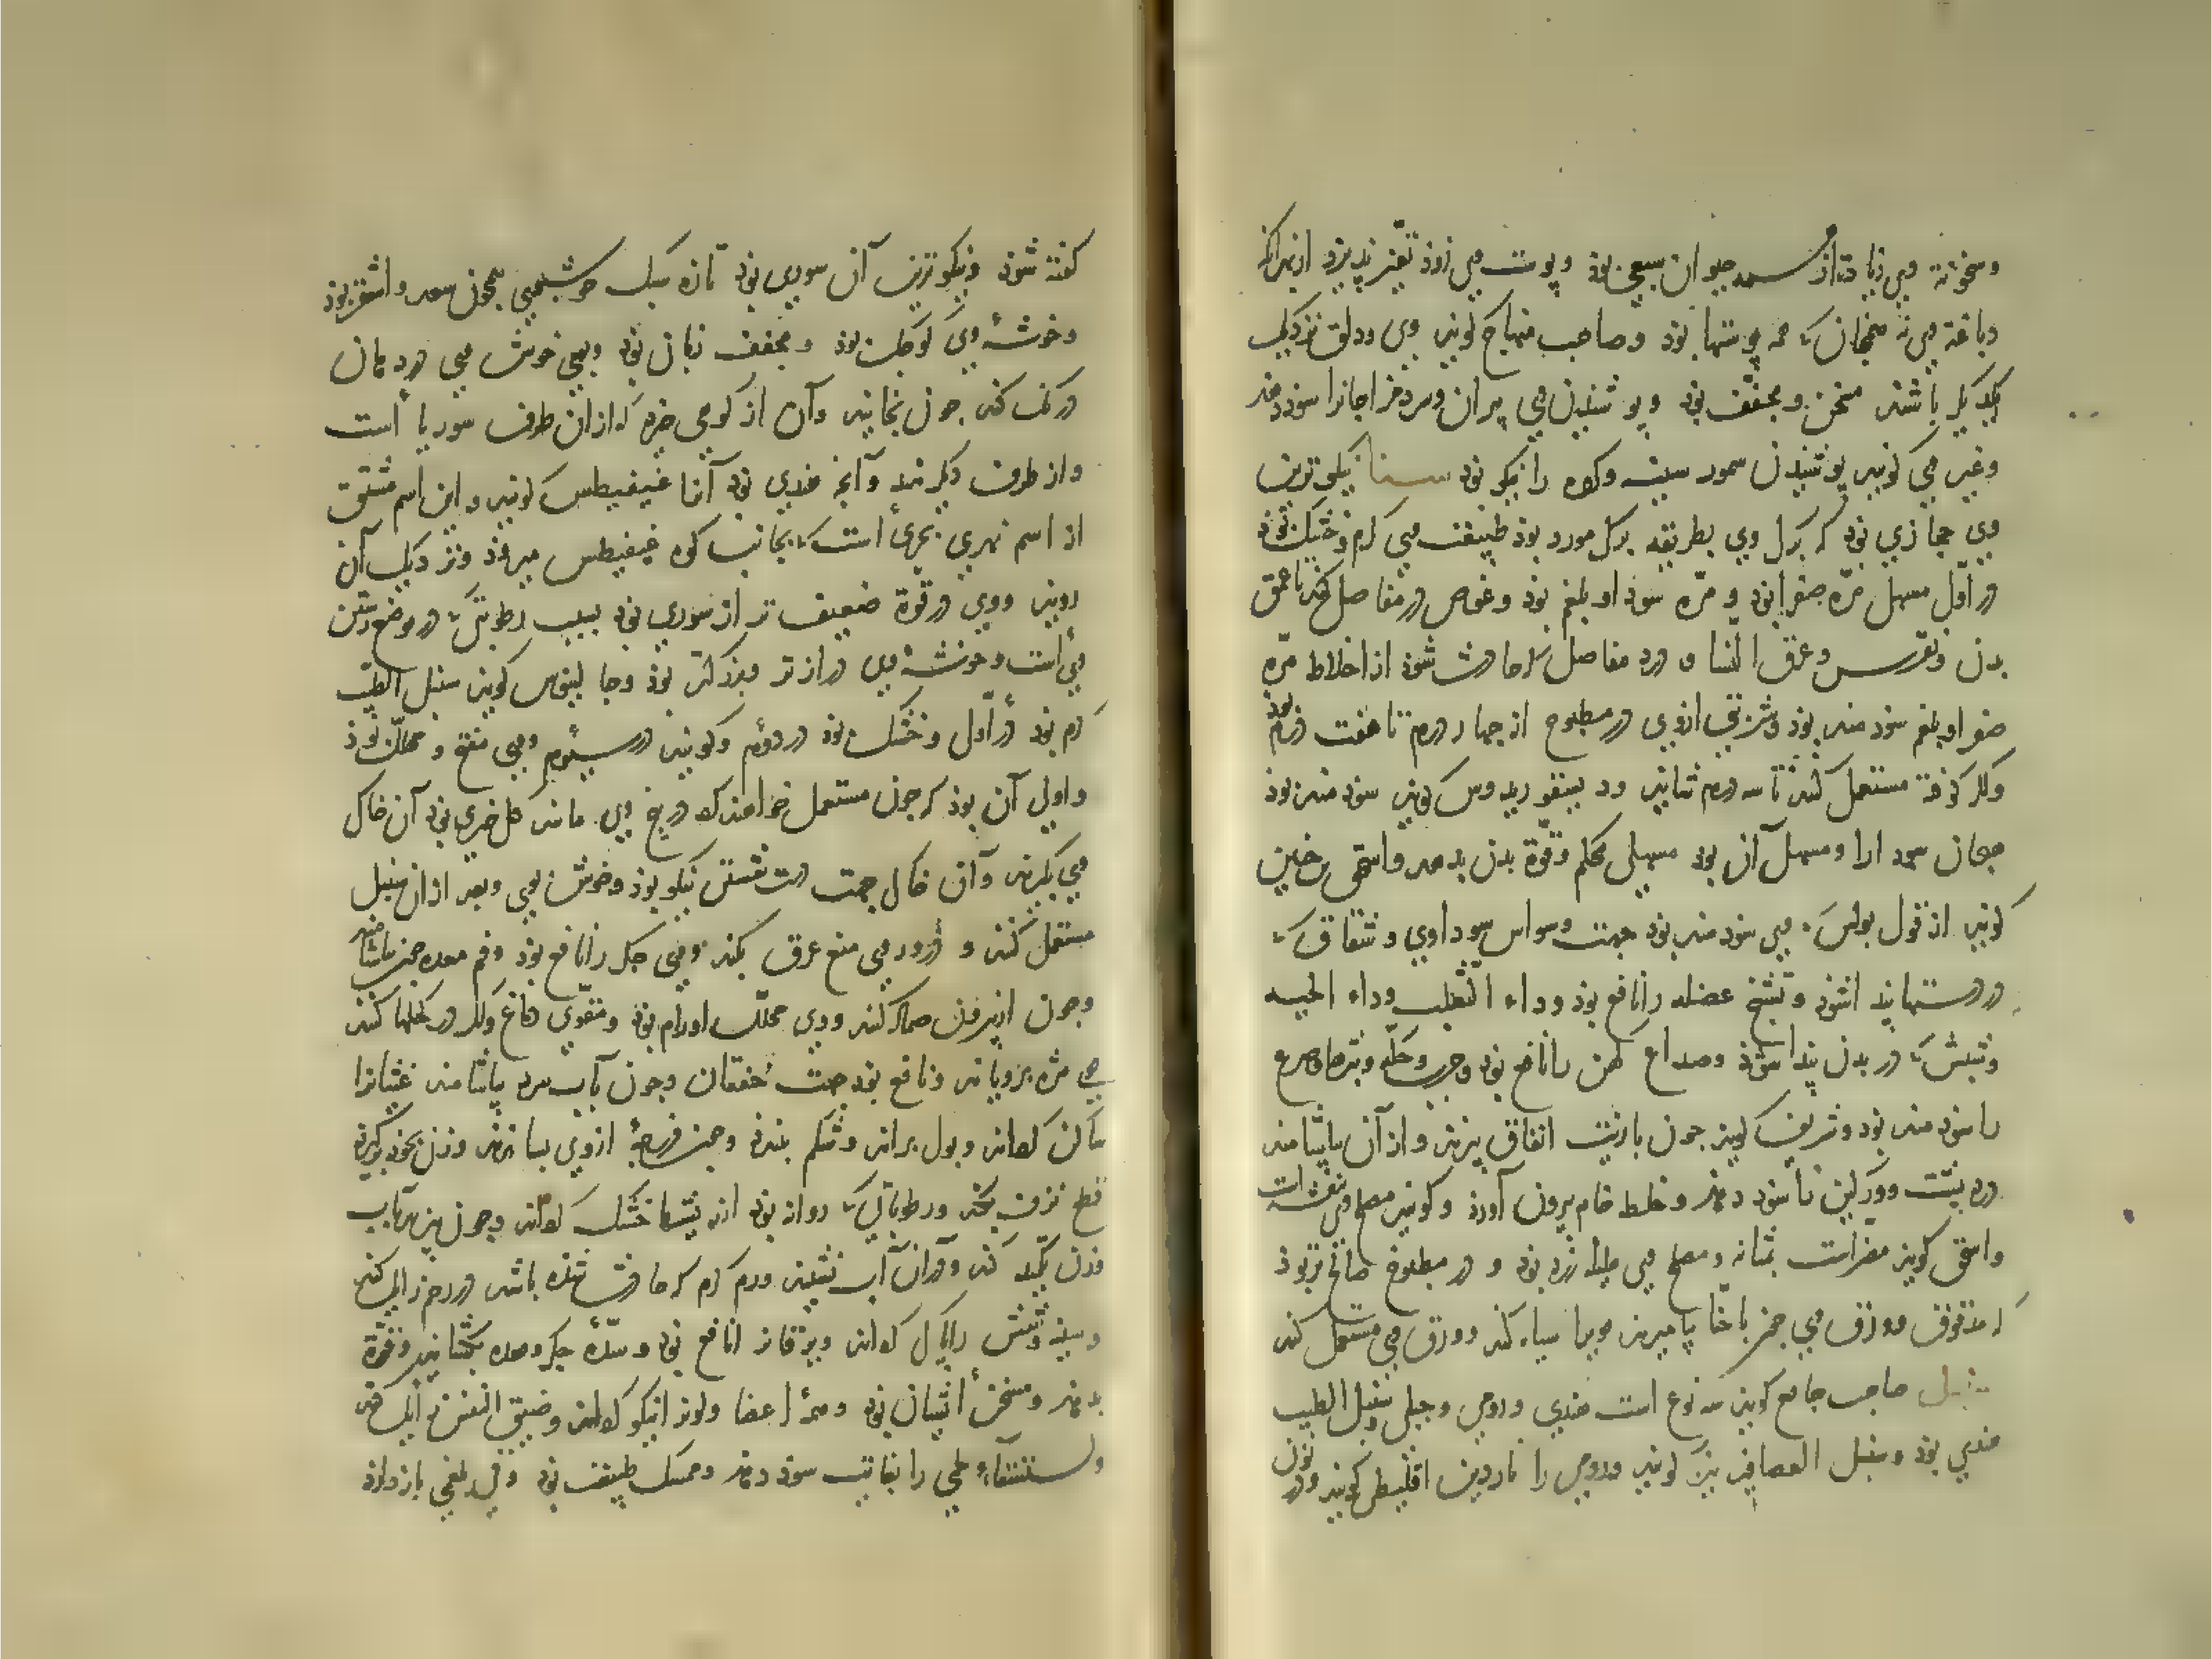 وسخونة وی زیادت از سمه حیوان سبعی بود و پوست وی زود تغیر پذیرد از بهر آنکه
دباغة وی نه همچنان که همه پوستها بود و صاحب منهاج کویند وی و دلق نزدیک
یکدیکر باشند مسخن و مجفف بود و پوشیدن وی پیران و سرد مزاجانرا سود دهد
وغیر وی کویند پوشیدن سمور سینه و کرده را نیکو بود سنا نیکوترین
وی حجازی بود که برک وی بطریقه برک مورد بود طبیعت وی کرم و خشک بود
در اول مسهل مره صفرا بود و مره سودا و بلغم بود و غوص در مفاصل کند تا عمق
بدن و نقرس و عرق النسا و درد مفاصل که حادث شود از اخلاط مره
صفرا و بلغم سودمند بود و شربتی از وی در مطبوخ از چهار درم تا هفت درم بود
وکر کوفته مستعمل کنند تا سه درم شاید و دیسقوریدوس کویند سودمند بود
سودا را و مسهل آن بود مسهلی محکم و قوة بدن بدهد و اسحق بن حنین
کویند از قول بولس که وی سودمند بود جهت وسواس سوداوی و شقاق که
در دستها پیدا شود و تشنج عضله را نافع بود و داء الثعلب و داء الحیه
و شپش که در بدن پیدا شود و صداع کهن را نافع بود و جرب و حکه و بثرها و صرع
را سودمند بود و شریف کویند چون با زیت انفاق بپزند و از آن بیاشامند
درد پشت و ورکین را سود دهد و خلط خام بیرون آورد و کویند مصلح وی بنفشه است
و اسحق کویند مضر است بمثانه و مصلح وی هلیله زرد بود و در مطبوخ صالح تر بود
که مدقوق و ورق وی چون با حنا بیامیزند مویها سیاه کند و ورق وی مستعمل کنند
سنبل صاحب جامع کویند سه نوع است هندی و رومی و جبلی و سنبل الطیب
هندی بود و سنبل العصافیر نیز کویند و رومی را ناردین اقلیطی کویند و در نون
کفته شود و نیکوترین آن سوری بود تازه سبک خوشبوی همچون سعد و اشقر بود
و خوشه وی کوچک بود و مجفف زبان بود و بوی خوش وی در دهان
درنک کند چون بخایند و آن از کوهی خیزد که از آن طرف سوریا است
و از طرف دیکر هند و آنچه هندی بود آنرا غنغیطس کویند و این اسم مشتق
از اسم نهری بحری است که بجانب کوه غنغیطس میرود و نزدیک آن
روید و وی در قوة ضعیف تر از سوری بود بسبب رطوبتی که در موضع رستن
وی است و خوشه وی درازتر و بزرکتر بود و جالینوس کویند سنبل الطیب
کرم بود در اول و خشک بود در دوم و کویند در سیوم وی مفتح و محلل بود
و اولی آن بود که چون مستعمل خواهند کرد در بیخ وی مانند کل چیزی بود آن خاک
وی بکیرند و آن خاک جهت دست شستن نیکو بود و خوش بوی و بعد از آن سنبل
مستعمل کنند و ذرور وی منع عرق بکند و وی جکر را نافع بود و فم معده چون بیاشامند
و چون از بیرون ضماد کنند و وی محلل اورام بود و مقوی دماغ و اکر در کحلها کنند
وی مژه برویاند و نافع بود جهت خفقان و چون بآب سرد بیاشامند غثیانرا
ساکن کرداند و بول براند و شکم ببندد و چون فرزجه از وی بسازند و زن بخود برکیرد
قطع نزف بکند و رطوباتی که روان بود از آن پشتها خشک کرداند و چون بپزند بآب
و زن تکمید کند و در آن آب نشیند ورم کرم که حادث شده باشد در رحم زایل کند
و سینه و شش را پاک کرداند و یرقانرا نافع بود و سده جکر و معده بکشاید و قوة
بدهد و مسخن انثیان بود و همه اعضا و لونرا نیکو کرداند و ضیق النفس زایل کند
و استسقاء لحمی را بغایت سود دهد و ممسک طبیعت بود و قی بلغمی بازدارد